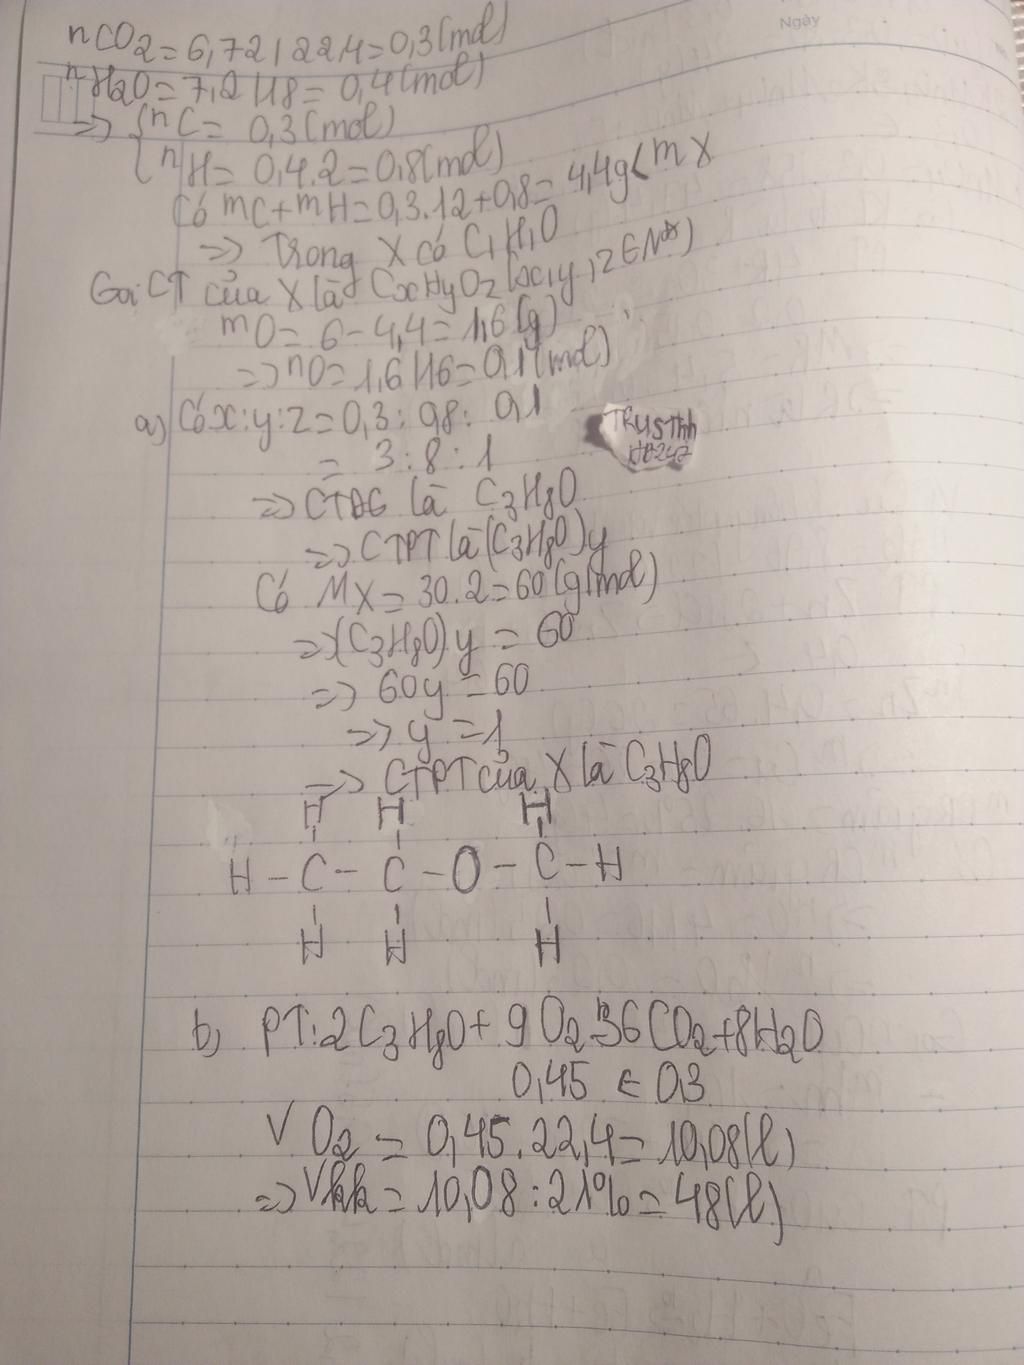 Ngày
nCO2 = 6,72 / 22,4 = 0,3 (mol)
nH2O = 7,2 / 18 = 0,4 (mol)
=> { nC = 0,3 (mol)
{ nH = 0,4.2 = 0,8 (mol)
Có mC + mH = 0,3.12 + 0,8 = 4,4g < mX
=> Trong X có C, H, O
Gọi CT của X là CxHyOz (x,y,z ∈ N*)
mO = 6 - 4,4 = 1,6 (g)
=> nO = 1,6 / 16 = 0,1 (mol)
a) Có x : y : z = 0,3 : 0,8 : 0,1
= 3 : 8 : 1
TRUSThh
HD247
=> CTĐG là C3H8O
=> CTPT là (C3H8O)y
Có MX = 30.2 = 60 (g/mol)
=> (C3H8O)y = 60
=> 60y = 60
=> y = 1
=> CTPT của X là C3H8O
H H H
H - C - C - O - C - H
H H H
b) PT: 2C3H8O + 9O2 → 6CO2 + 8H2O
0,45 ← 0,3
VO2 = 0,45.22,4 = 10,08 (l)
=> Vkk = 10,08 : 21% = 48 (l)